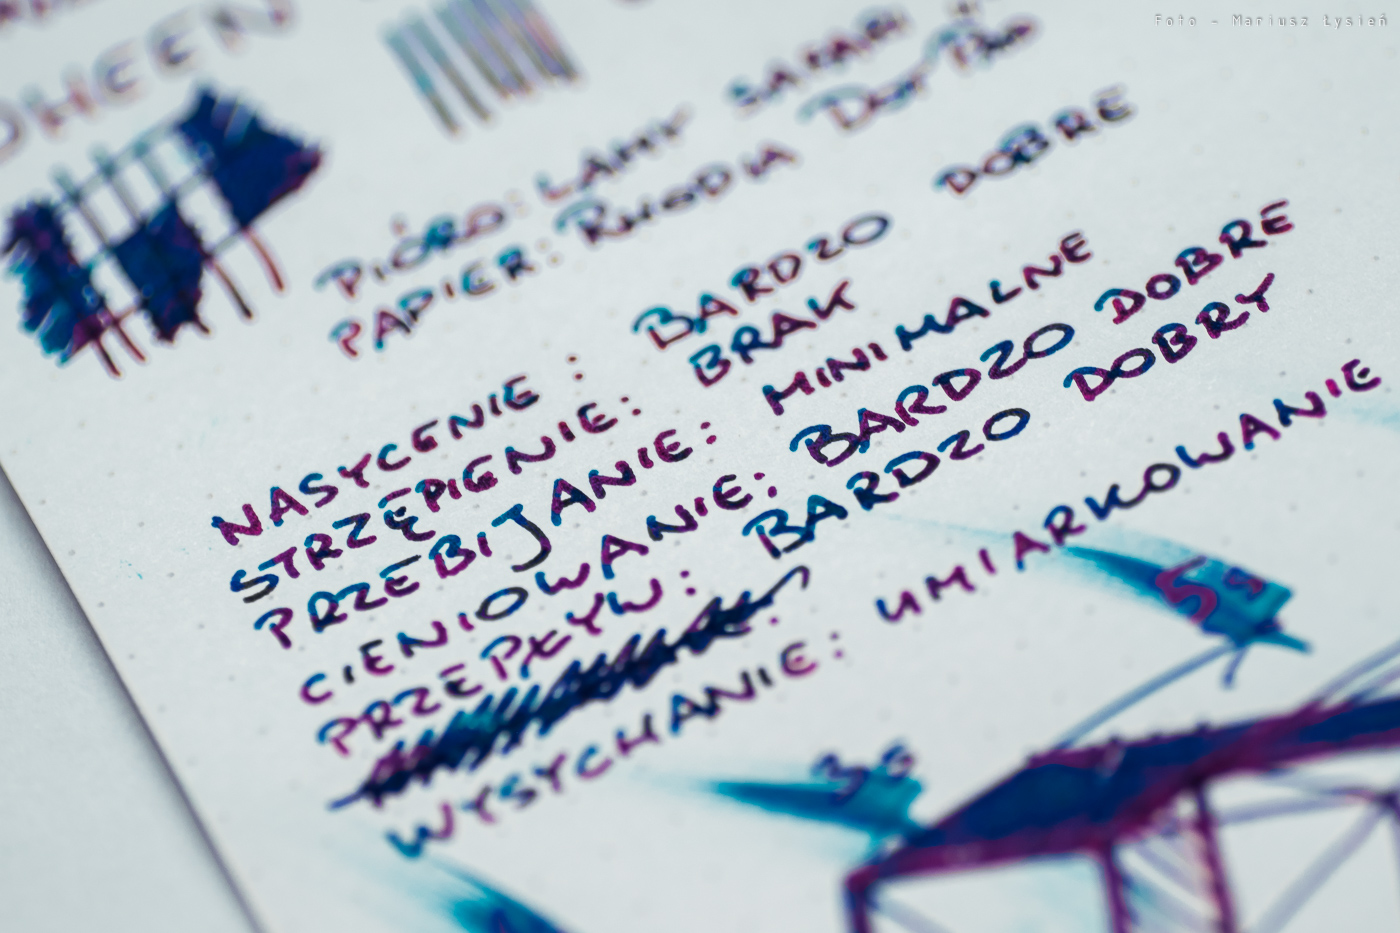 Foto - Mariusz Łysień
PIÓRO: LAMY SAFARI
PAPIER: RHODIA Dot Pad
NASYCENIE : BARDZO DOBRE
STRZĘPIENIE: BRAK
PRZEBIJANIE: MINIMALNE
CIENIOWANIE: BARDZO DOBRE
PRZEPŁYW: BARDZO DOBRY
WYSYCHANIE: UMIARKOWANIE
5s
3s